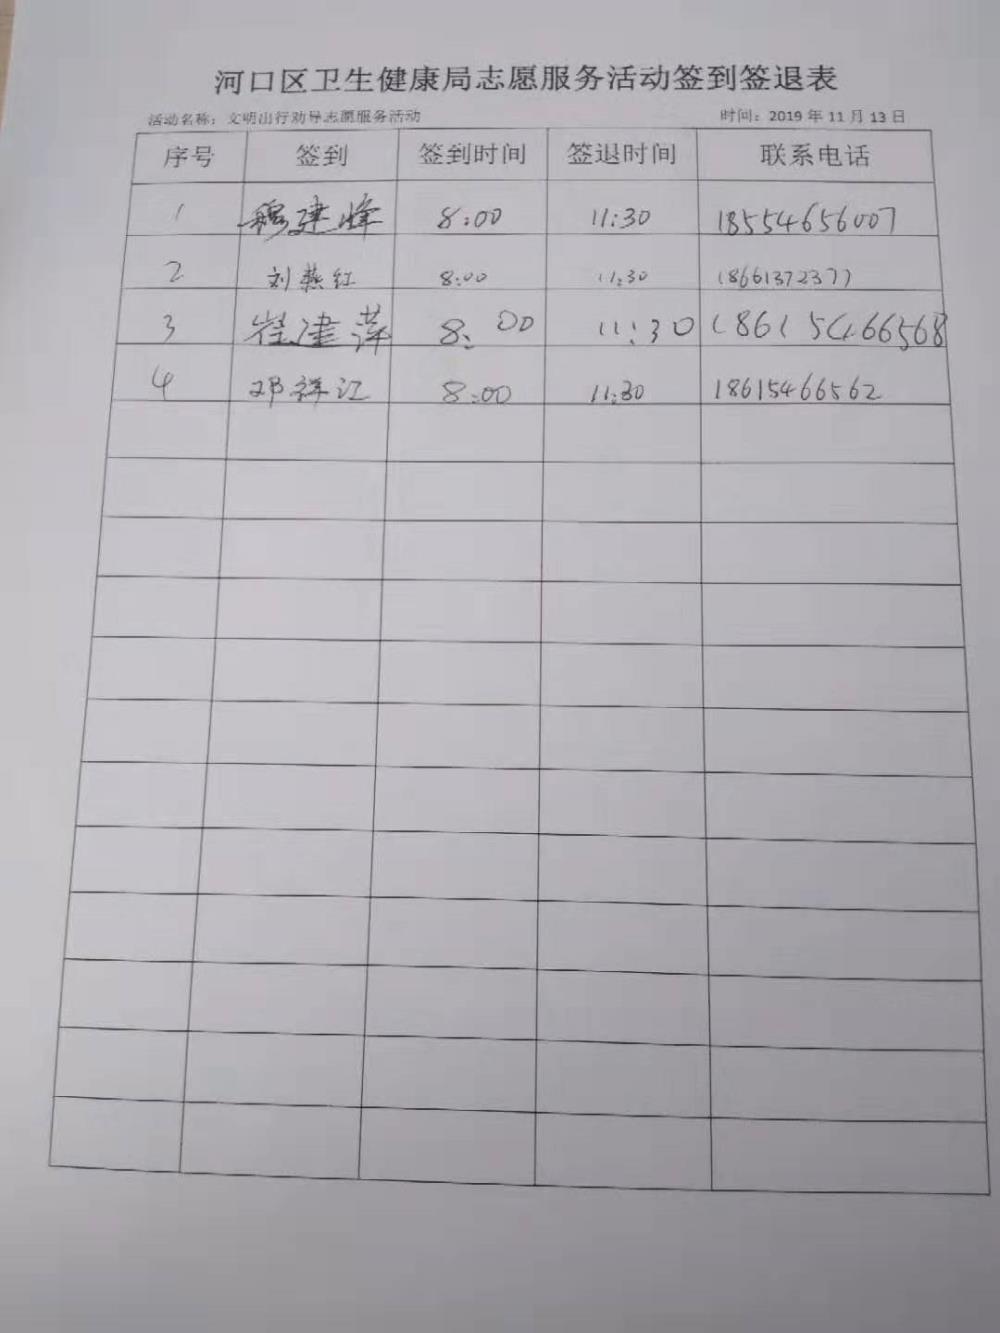 河口区卫生健康局志愿服务活动签到签退表
活动名称：文明出行劝导志愿服务活动 时间：2019 年 11 月 13 日
序号 签到 签到时间 签退时间 联系电话
1 穆建峰 8:00 11:30 18554656007
2 刘燕红 8:00 11:30 18661372377
3 崔建萍 8:00 11:30 18615466568
4 邓祥江 8:00 11:30 18615466562